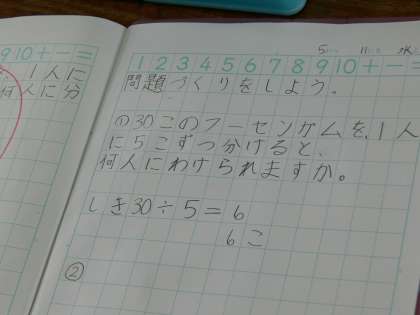 9 10 + − =
1人に
何人に分
1 2 3 4 5 6 7 8 9 10 + − =
問題づくりをしよう。
①30このフーセンガムを、1人
に5こずつわけると、
何人にわけられますか。
しき30÷5=6
6こ
②